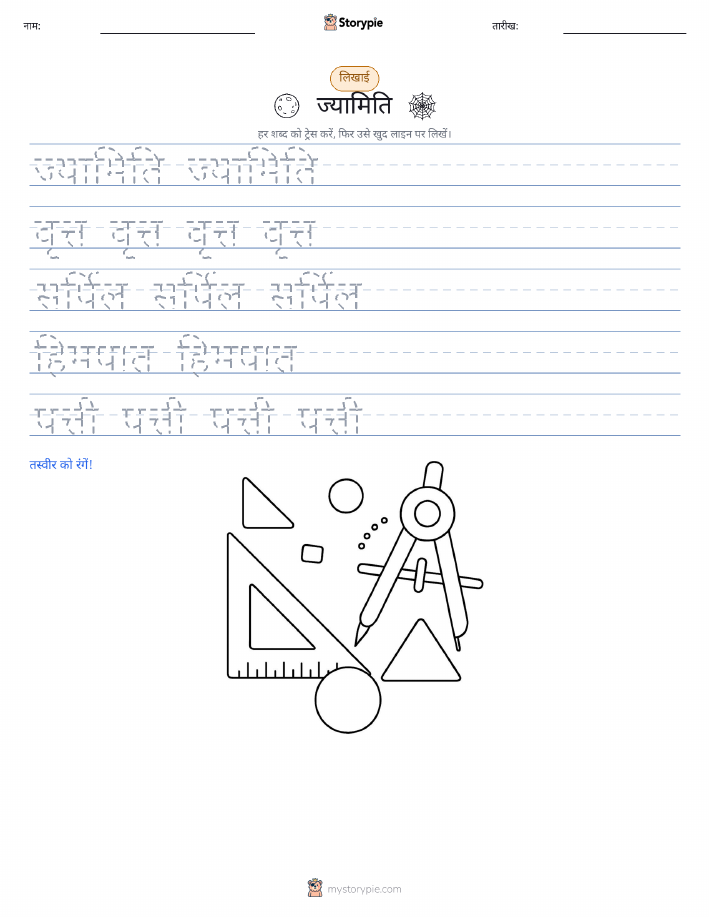 नाम:
Storypie
तारीख:
लिखाई
ज्यामिति
हर शब्द को ट्रेस करें, फिर उसे खुद लाइन पर लिखें।
ज्यामिति ज्यामिति
वृत्त वृत्त वृत्त वृत्त
सर्पिल सर्पिल सर्पिल
हिमपात हिमपात
पत्ती पत्ती पत्ती पत्ती
तस्वीर को रंगें!
mystorypie.com